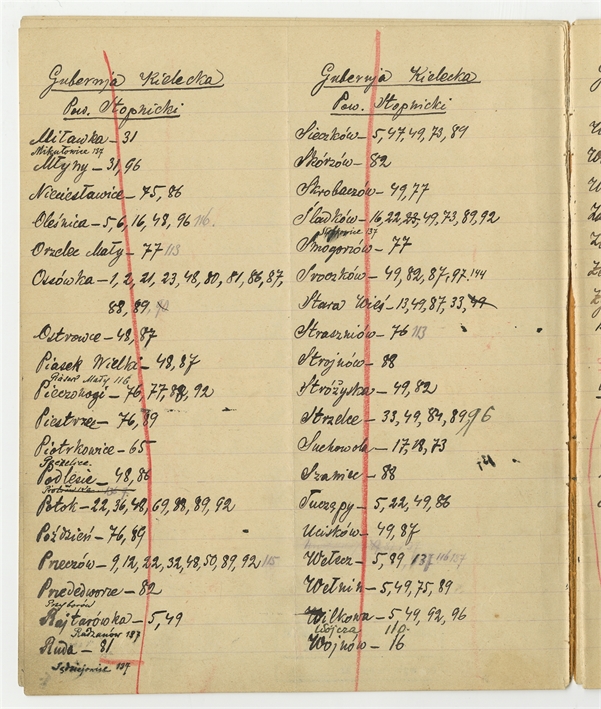 Gubernja Kielecka
Pow. Stopnicki
Miławka - 31
Mikułowice 137
Młyny - 31, 96
Nieciesławice - 75, 86
Oleśnica - 5, 6, 16, 48, 96 116
Orzelec Mały - 77 113
Ossówka - 1, 2, 21, 23, 48, 80, 81, 86, 87,
88, 89,
Ostrowce - 48, 87
Piasek Wielki - 48, 87
Mały 116
Pieczonogi - 76, 77, 88, 92
Piestrzec - 76, 89
Piotrkowice - 65
Podlesie - 48, 86
Potok - 22, 36, 48, 69, 88, 89, 92
Poździeń - 76, 89
Preczów - 9, 12, 22, 32, 48, 50, 89, 92 115
Przededworze - 82
Przyborów
Rajtarówka - 5, 49
Radzanów 137
Ruda - 81
Sędziejowice 137
Gubernja Kielecka
Pow. Stopnicki
Sieczków - 5, 47, 49, 73, 89
Skorzów - 82
Skrobaczów - 49, 77
Śladków - 16, 22, 23, 49, 73, 89, 92
137
Smogorzów - 77
Sroczków - 49, 82, 87, 97. 144
Stara Wieś - 13, 49, 87, 33, 49
Straszniów - 76 113
Strojnów - 88
Stróżyska - 49, 82
Strzelce - 33, 49, 84, 89, 96
Suchowola - 17, 18, 73
Szaniec - 88
Tuczępy - 5, 22, 49, 86
Ucisków - 49, 87
Wełecz - 5, 89, 137 116 137
Wełnin - 5, 49, 75, 89
Wilkowa - 5, 49, 92, 96
Wójcza 110
Wojnów - 16